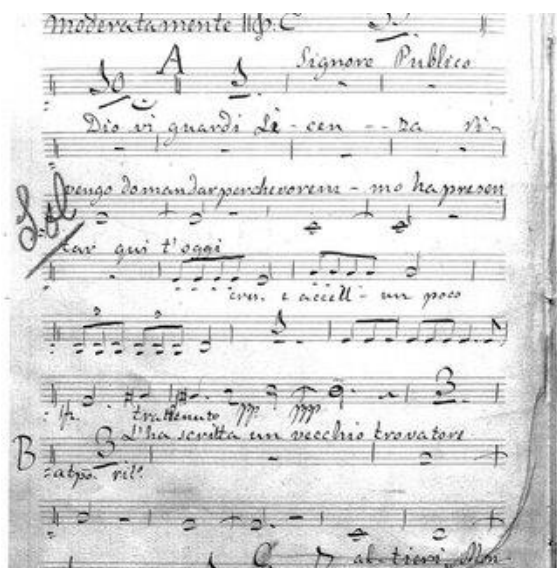 Moderatamente
10 A 1 Signore Publico
Dio vi guardi Li - cen - - za vi -
vengo domandar perche vorem - mo ha presen
tar qui t'oggi
cres. e accell - un poco
3 3 1
3
trattenuto pp ppp
L'ha scritta un vecchio trovatore
B 3
atpo. ril.
al - tieri Mon